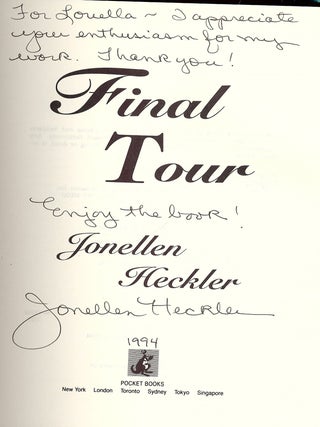 For Louella ~ I appreciate
your enthusiasm for my
work. Thank you!
Final
Tour
Enjoy the book!
Jonellen
Heckler
Jonellen Heckler
1994
POCKET BOOKS
New York London Toronto Sydney Tokyo Singapore